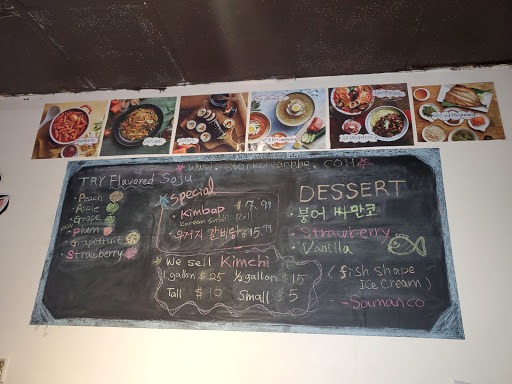 TRY Flavored Soju
Peach
Apple
Grape
Plum
Grapefruit
Strawberry
Special
Kimbap $7.99
Korean Sushi Roll
우거지 갈비탕 $15.99
We sell Kimchi
1 gallon $25 ½ gallon $15
Tall $10 Small $5
DESSERT
붕어 싸만코
Strawberry
Vanilla
(fish shape
Ice Cream)
- Samanco